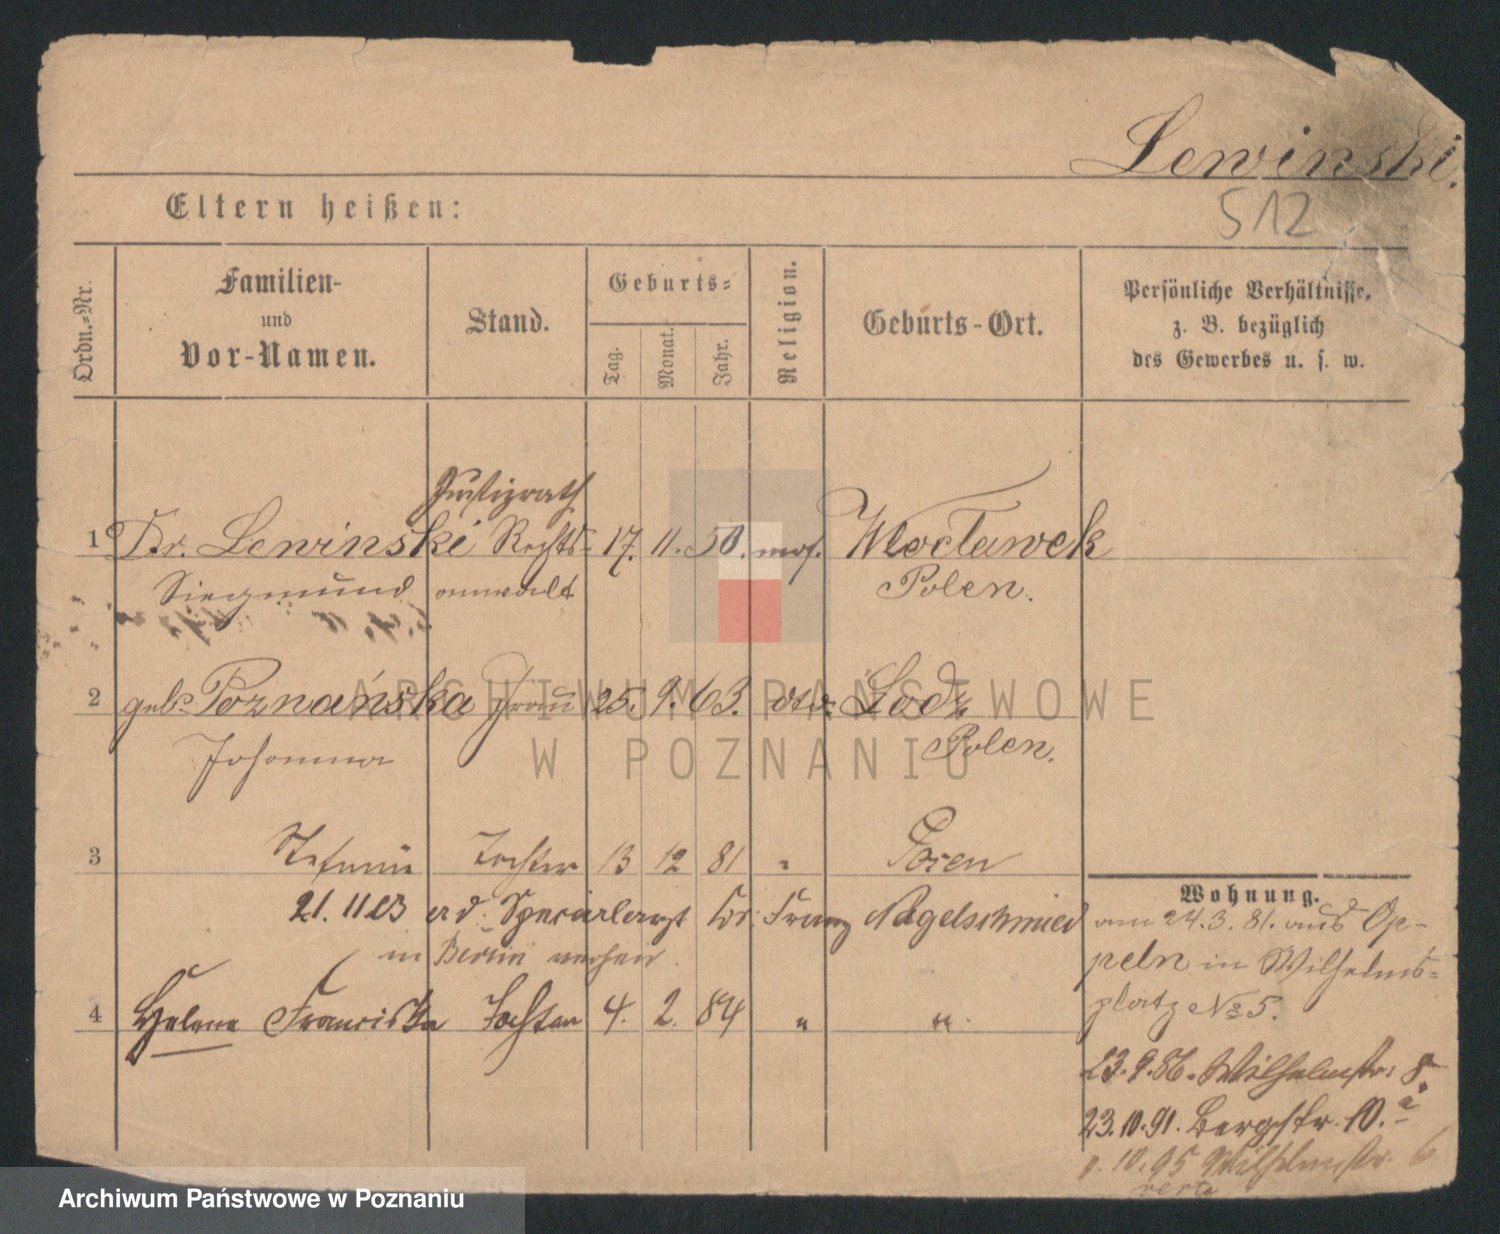 Lewinski.
512
Eltern heißen:
Ordn.-Nr.
Familien-
und
Vor-Namen.
Stand.
Geburts-
Tag.
Monat.
Jahr.
Religion.
Geburts-Ort.
Persönliche Verhältnisse,
z. B. bezüglich
des Gewerbes u. s. w.
Justizrath
1 Dr. Lewinski Rechts- 17. 11. 50. mos. Włocławek
Siegmund anwalt Polen.
2 geb. Poznańska Frau 25. 9. 63. dto. Lodz
Johanna Polen.
3 Stefanie Tochter 13 12 81 " Posen
21. 11 03 Specialarzt Dr. Franz Nagelschmied
in Berlin
4 Helene Franciska Tochter 4. 2. 84 " "
Wohnung.
am 24.3.81. aus Op-
peln in Wilhelms-
platz No 5.
23.9.86. Wilhelmstr. 8.
23.10.91. Bergstr. 10.a
10.95 Wilhelmstr. 6
verte
ARCHIWUM PAŃSTWOWE
W POZNANIU
Archiwum Państwowe w Poznaniu